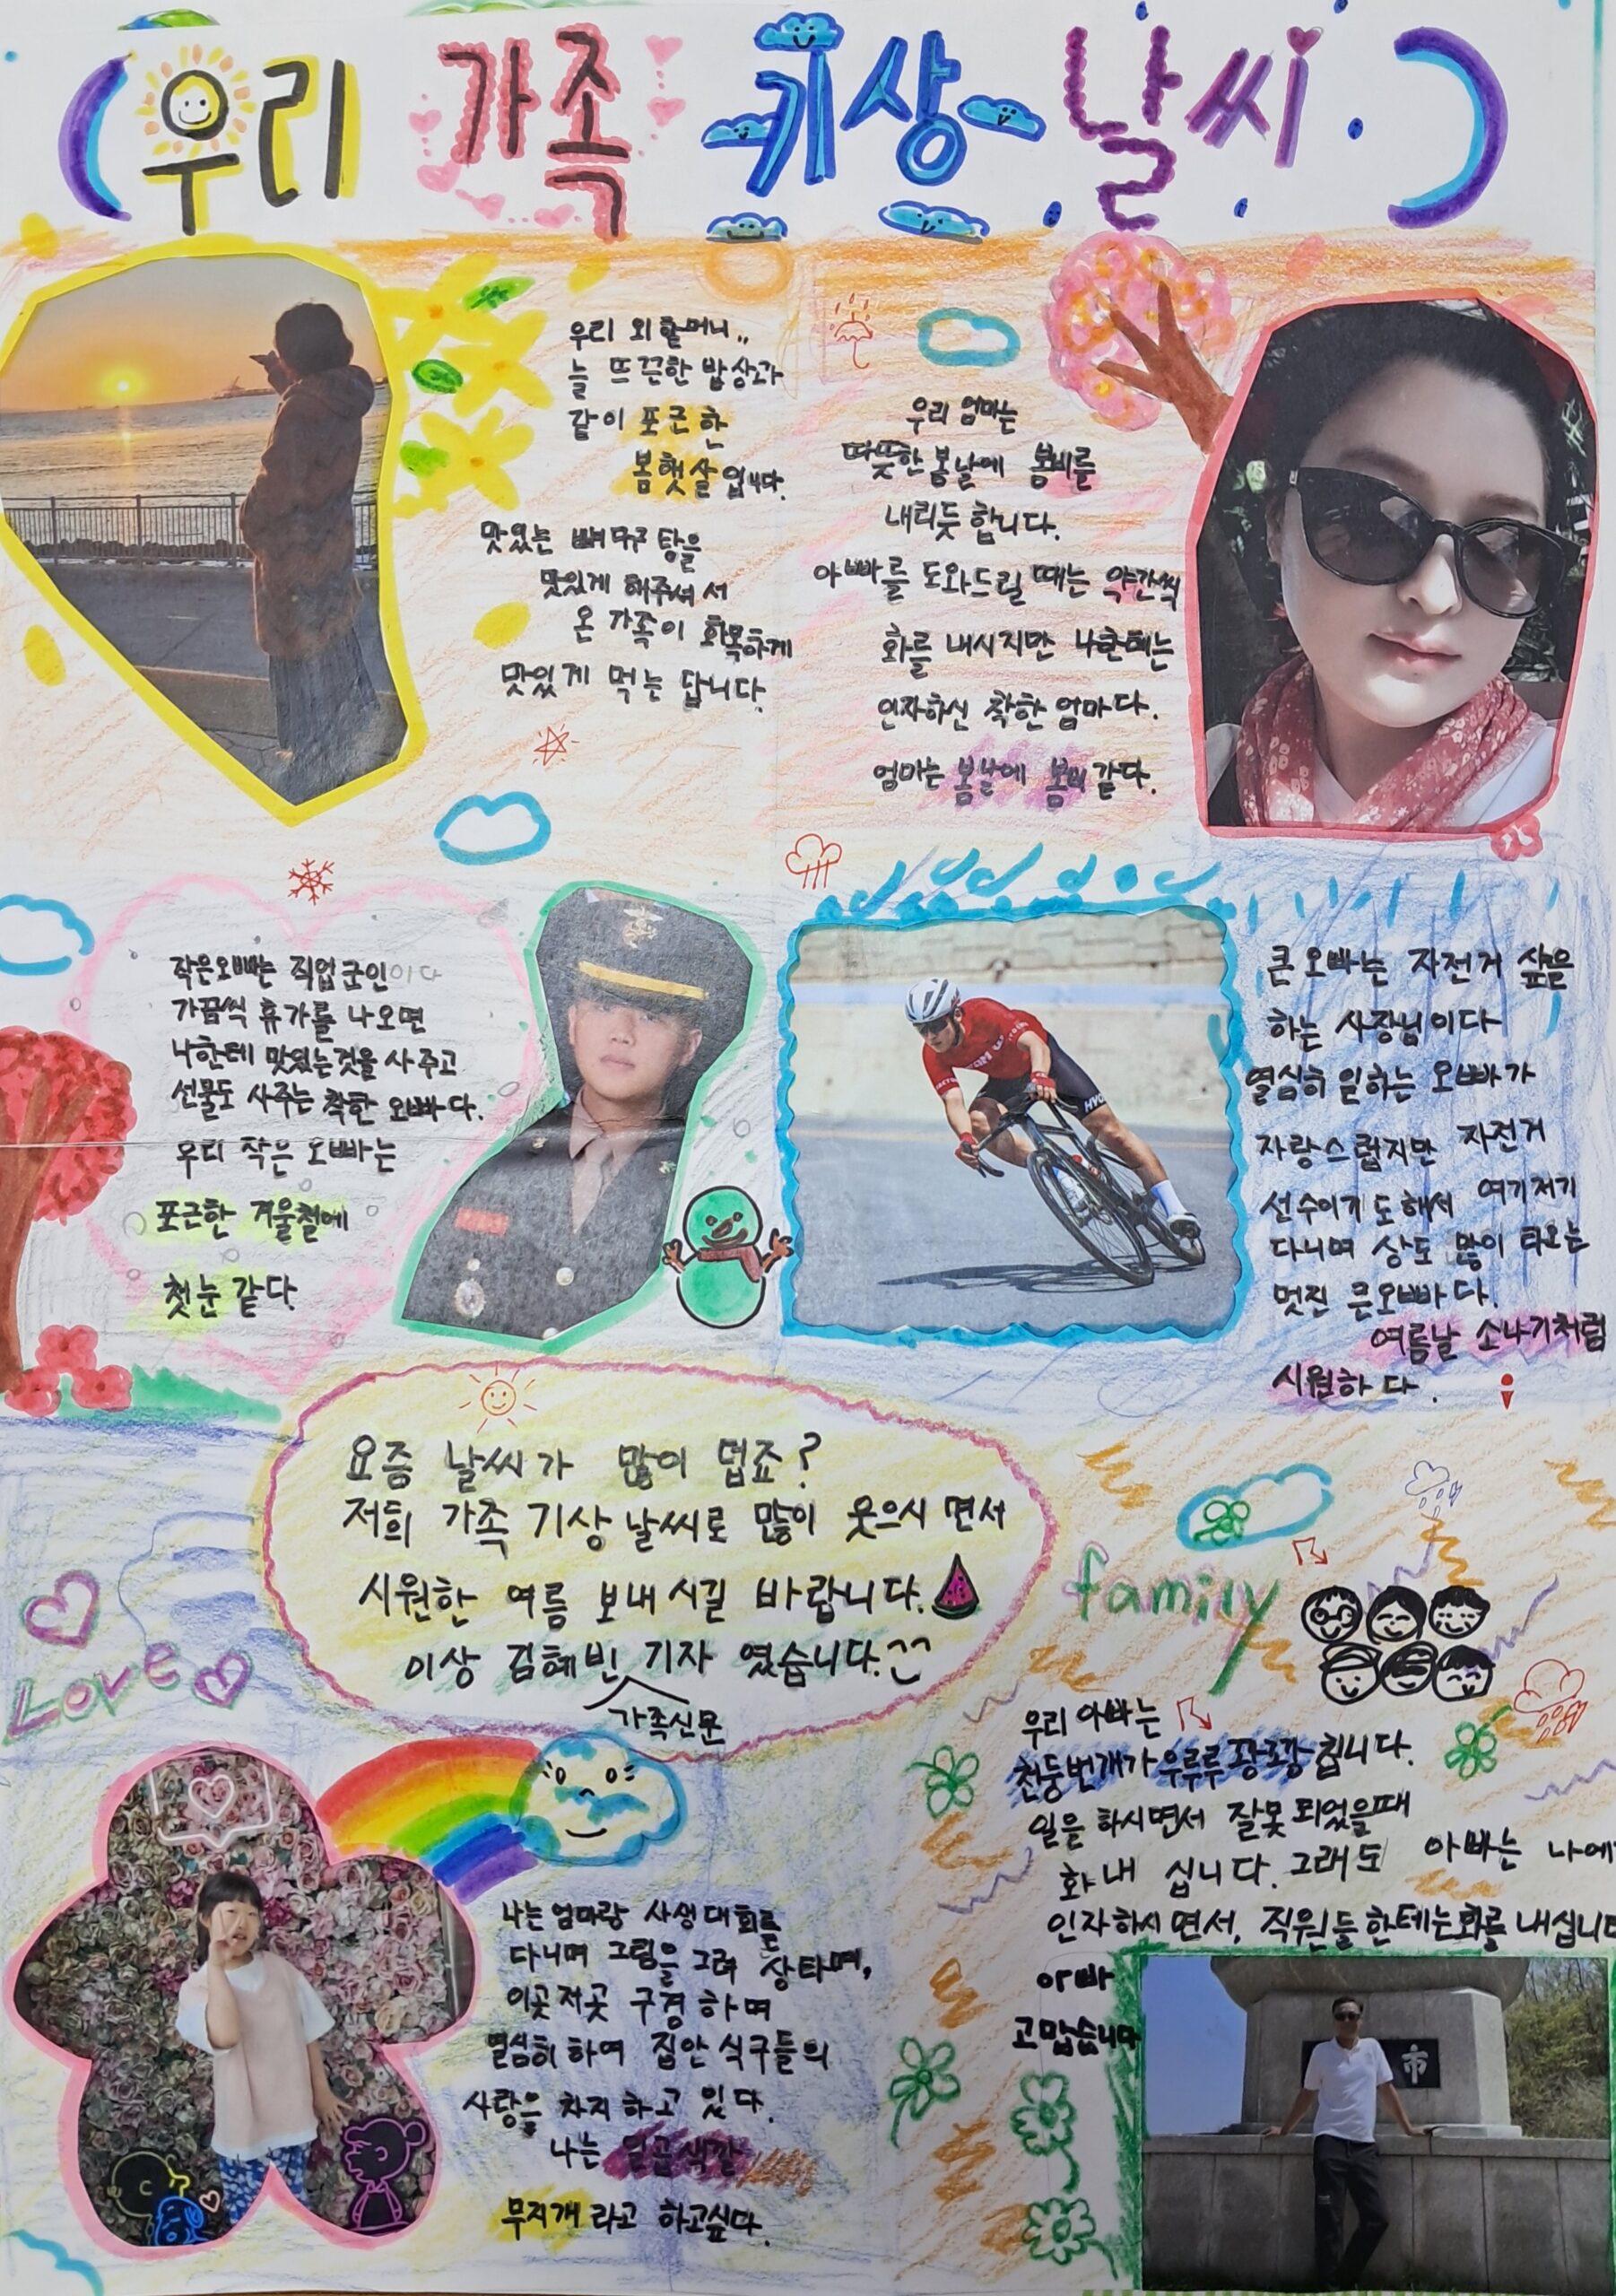 (우리 가족 기상 날씨)
우리 외할머니..
늘 뜨끈한 밥상과
같이 포근한
봄햇살입니다.
맛있는 뼈다구탕을
맛있게 해주셔서
온 가족이 화목하게
맛있게 먹는답니다.
우리 엄마는
따뜻한 봄날에 봄비를
내리듯 합니다.
아빠를 도와드릴 때는 약간씩
화를 내시지만 나한테는
인자하신 착한 엄마다.
엄마는 봄날에 봄비 같다.
작은오빠는 직업군인이다
가끔씩 휴가를 나오면
나한테 맛있는것을 사주고
선물도 사주는 착한 오빠다.
우리 작은 오빠는
포근한 겨울철에
첫눈 같다.
큰오빠는 자전거 샾을
하는 사장님이다
열심히 일하는 오빠가
자랑스럽지만 자전거
선수이기도해서 여기저기
다니며 상도 많이 타오는
멋진 큰오빠다.
여름날 소나기처럼
시원하다.
요즘 날씨가 많이 덥죠?
저희 가족 기상날씨로 많이 웃으시면서
시원한 여름 보내시길 바랍니다.
이상 김혜빈 기자 였습니다.
가족신문
Love
family
우리 아빠는
천둥번개가 우루루 쾅쾅 칩니다.
일을 하시면서 잘못되었을때
화내 십니다. 그래도 아빠는 나에
인자하시면서, 직원들한테는 화를 내십니다
아빠
고맙습니다
市
나는 엄마랑 사생대회를
다니며 그림을 그려 상타며,
이곳저곳 구경하며
열심히 하여 집안 식구들의
사랑을 차지하고 있다.
나는 일곱색깔
무지개라고 하고싶다.